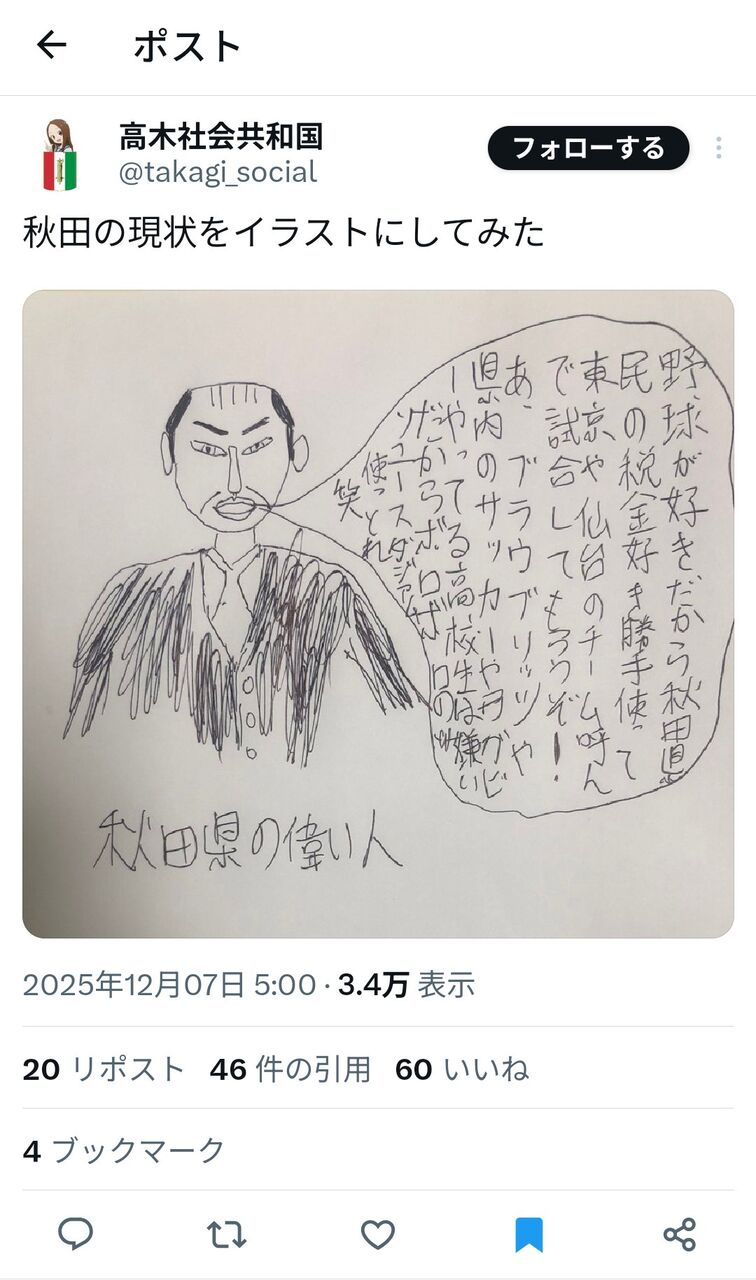 ポスト
高木社会共和国
@takagi_social
フォローする
秋田の現状をイラストにしてみた
野球が好きだから秋田県
民の税金好き勝手使って
東京や仙台のチーム呼ん
で試合してもらうぞー!
あ、ブラウブリッツや
県内のサッカーや
ーやってる高校生は嫌い
だからボロボロの
ソユースタジアム
使っとれ
笑
秋田県の偉い人
2025年12月07日 5:00 · 3.4万 表示
20 リポスト 46 件の引用 60 いいね
4 ブックマーク